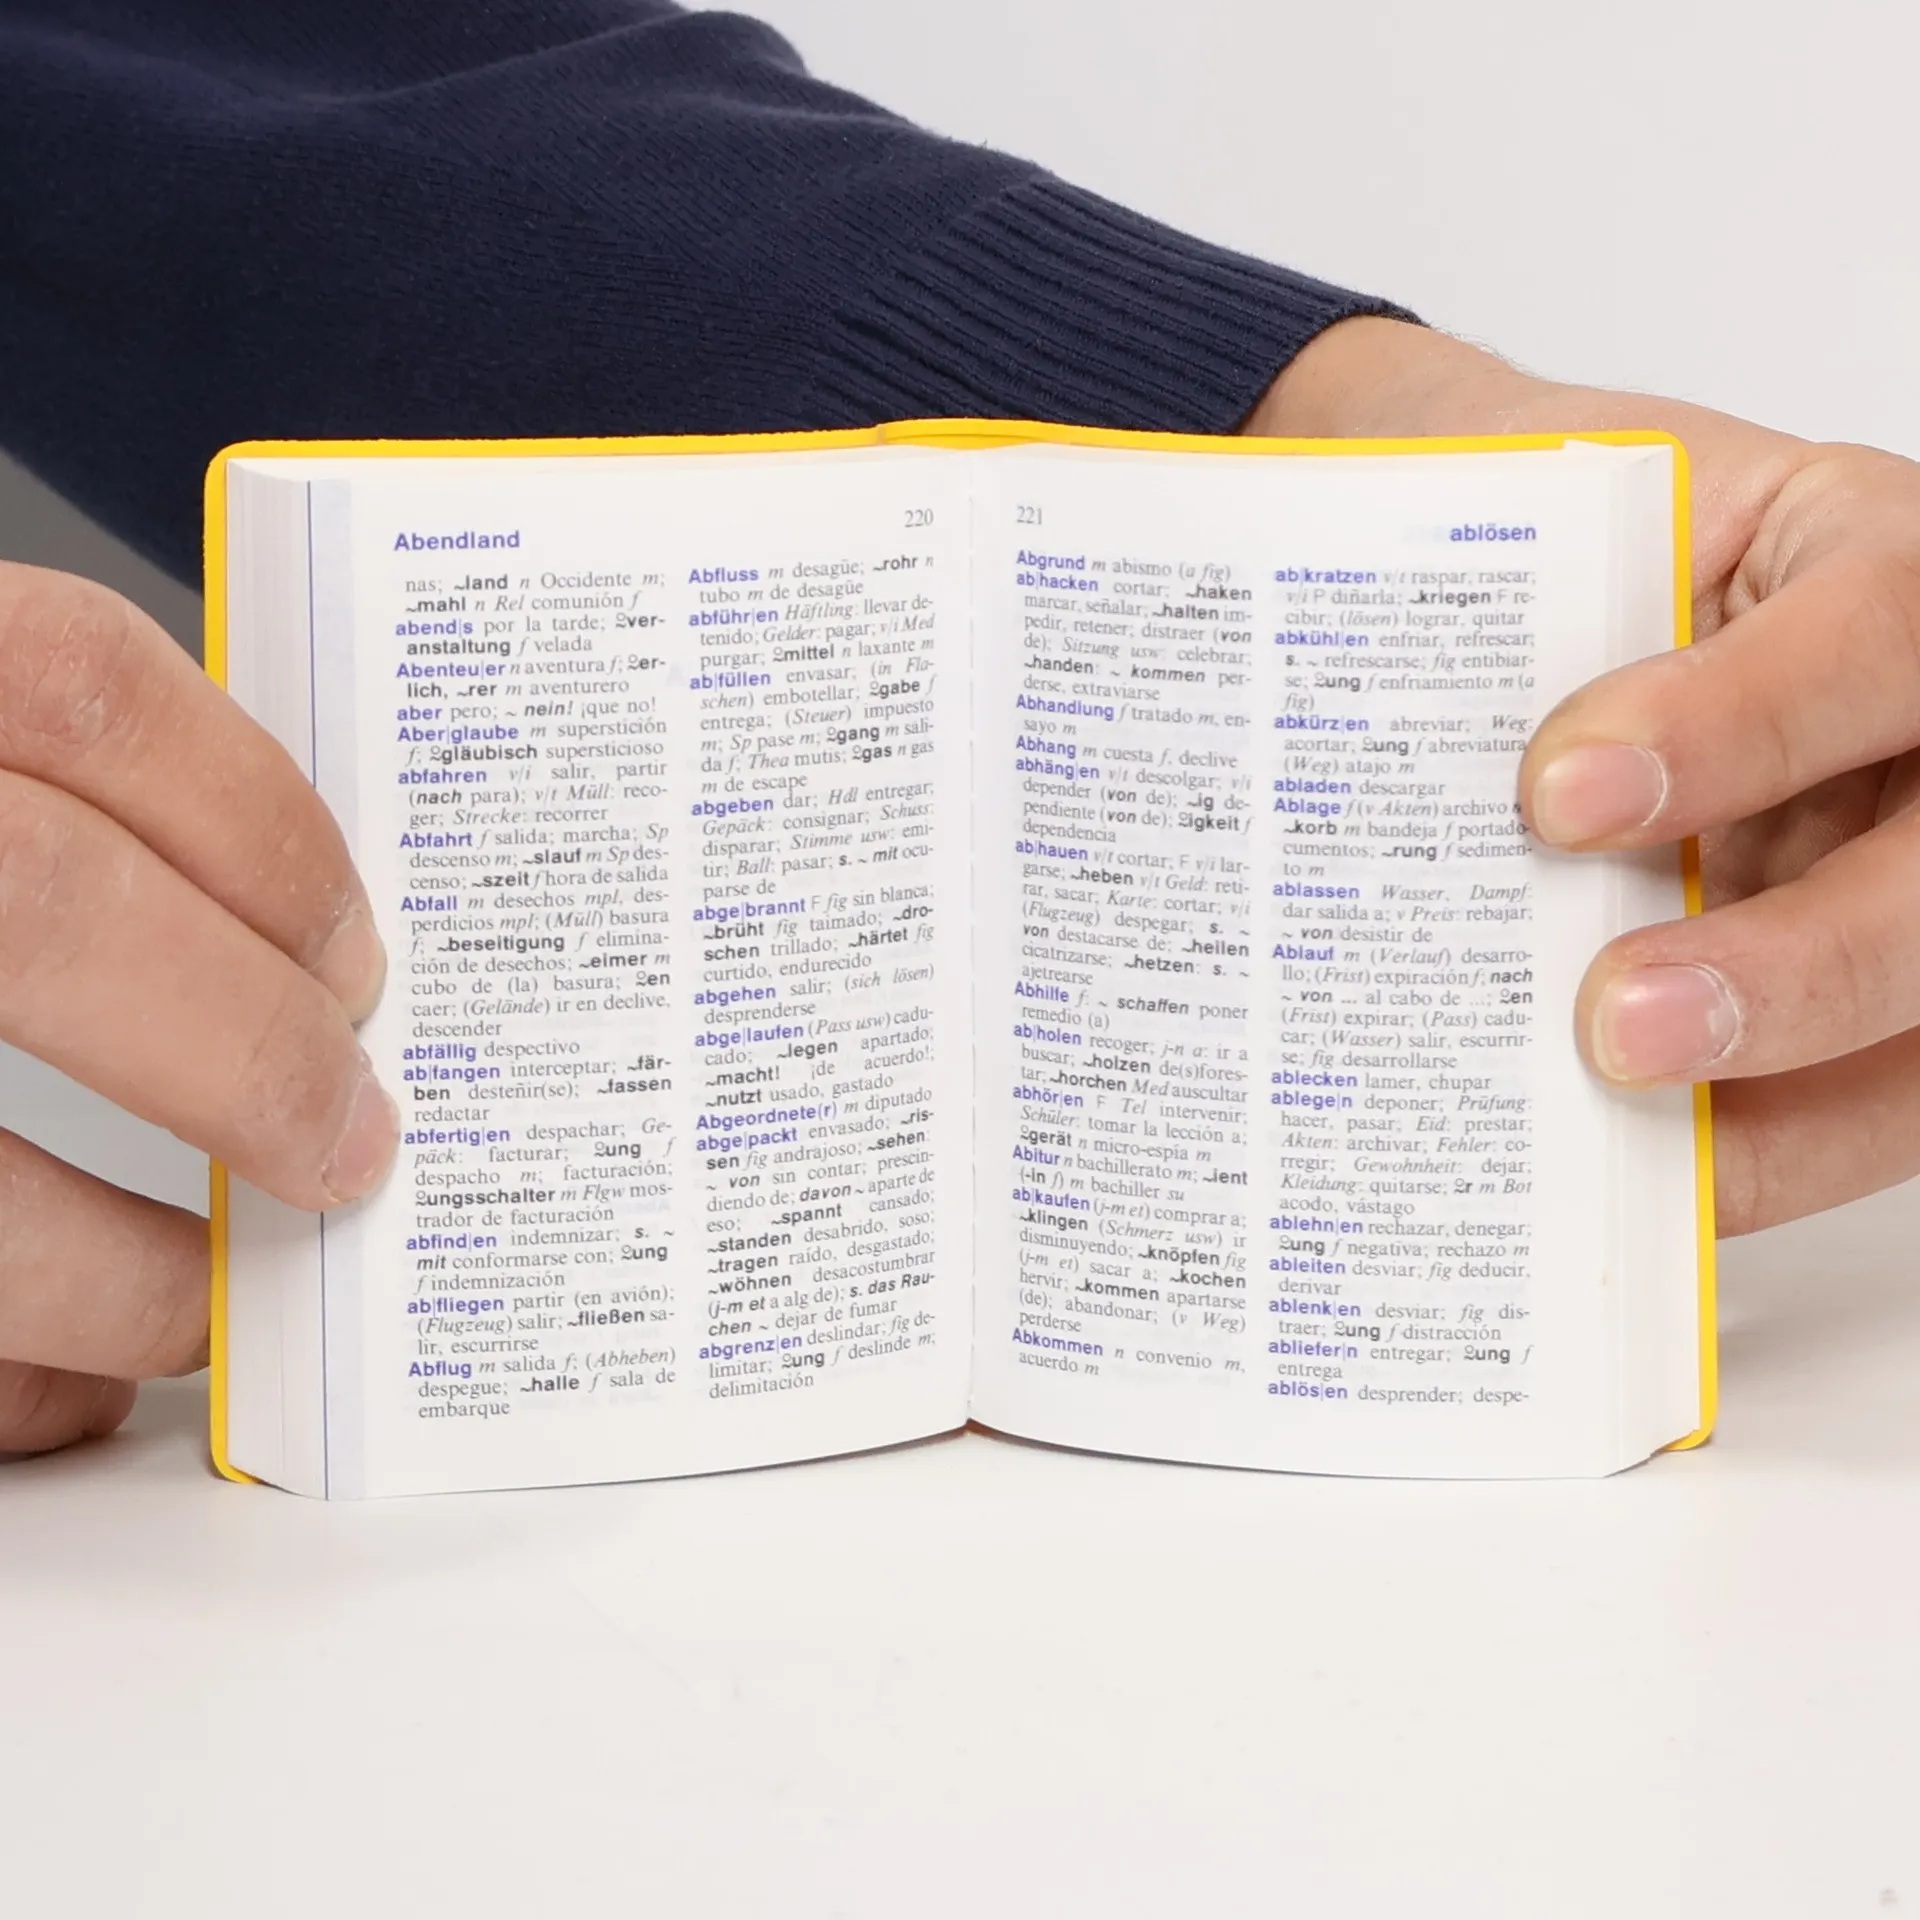 Abendland
220
nas; ~land n Occidente m;
~mahl n Rel comunión f
abend|s por la tarde; ⁠2ver-
anstaltung f velada
Abenteu|er n aventura f; 2er-
lich, ~rer m aventurero
aber pero; ~ nein! ¡que no!
Aber|glaube m superstición
f; 2gläubisch supersticioso
abfahren v/i salir, partir
(nach para); v/t Müll: reco-
ger; Strecke: recorrer
Abfahrt f salida; marcha; Sp
descenso m; ~slauf m Sp des-
censo; ~szeit f hora de salida
Abfall m desechos mpl, des-
perdicios mpl; (Müll) basura
f; ~beseitigung f elimina-
ción de desechos; ~eimer m
cubo de (la) basura; 2en
caer; (Gelände) ir en declive,
descender
abfällig despectivo
ab|fangen interceptar; ~fär-
ben desteñir(se); ~fassen
redactar
abfertig|en despachar; Ge-
päck: facturar; 2ung f
despacho m; facturación;
2ungsschalter m Flgw mos-
trador de facturación
abfind|en indemnizar; s. ~
mit conformarse con; 2ung
f indemnización
ab|fliegen partir (en avión);
(Flugzeug) salir; ~fließen sa-
lir, escurrirse
Abflug m salida f; (Abheben)
despegue; ~halle f sala de
embarque
Abfluss m desagüe; ~rohr n
tubo m de desagüe
abführ|en Häftling: llevar de-
tenido; Gelder: pagar; v/i Med
purgar; 2mittel n laxante m
ab|füllen envasar; (in Fla-
schen) embotellar; 2gabe f
entrega; (Steuer) impuesto
m; Sp pase m; 2gang m sali-
da f; Thea mutis; 2gas n gas
m de escape
abgeben dar; Hdl entregar;
Gepäck: consignar; Schuss:
disparar; Stimme usw: emi-
tir; Ball: pasar; s. ~ mit ocu-
parse de
abge|brannt F fig sin blanca;
~brüht fig taimado; ~dro-
schen trillado; ~härtet fig
curtido, endurecido
abgehen salir; (sich lösen)
desprenderse
abge|laufen (Pass usw) cadu-
cado; ~legen apartado;
~macht! ¡de acuerdo!;
~nutzt usado, gastado
Abgeordnete(r) m diputado
abge|packt envasado; ~ris-
sen fig andrajoso; ~sehen:
~ von sin contar; prescin-
diendo de; davon ~ aparte de
eso; ~spannt cansado;
~standen desabrido, soso;
~tragen raído, desgastado;
~wöhnen desacostumbrar
(j-m et a alg de); s. das Rau-
chen ~ dejar de fumar
abgrenz|en deslindar; fig de-
limitar; 2ung f deslinde m;
delimitación
221
ablösen
Abgrund m abismo (a fig)
ab|hacken cortar; ~haken
marcar, señalar; ~halten im-
pedir, retener; distraer (von
de); Sitzung usw: celebrar;
~handen: ~ kommen per-
derse, extraviarse
Abhandlung f tratado m, en-
sayo m
Abhang m cuesta f, declive
abhäng|en v/t descolgar; v/i
depender (von de); ~ig de-
pendiente (von de); 2igkeit f
dependencia
ab|hauen v/t cortar; F v/i lar-
garse; ~heben v/t Geld: reti-
rar, sacar; Karte: cortar; v/i
(Flugzeug) despegar; s. ~
von destacarse de; ~heilen
cicatrizarse; ~hetzen: s. ~
ajetrearse
Abhilfe f: ~ schaffen poner
remedio (a)
ab|holen recoger; j-n a: ir a
buscar; ~holzen de(s)fores-
tar; ~horchen Med auscultar
abhör|en F Tel intervenir;
Schüler: tomar la lección a;
2gerät n micro-espía m
Abitur n bachillerato m; ~ient
(-in f) m bachiller su
ab|kaufen (j-m et) comprar a;
~klingen (Schmerz usw) ir
disminuyendo; ~knöpfen fig
(j-m et) sacar a; ~kochen
hervir; ~kommen apartarse
(de); abandonar; (v Weg)
perderse
Abkommen n convenio m,
acuerdo m
ab|kratzen v/t raspar, rascar;
v/i P diñarla; ~kriegen F re-
cibir; (lösen) lograr, quitar
abkühl|en enfriar, refrescar;
s. ~ refrescarse; fig entibiar-
se; 2ung f enfriamiento m (a
fig)
abkürz|en abreviar; Weg:
acortar; 2ung f abreviatura
(Weg) atajo m
abladen descargar
Ablage f (v Akten) archivo
~korb m bandeja f portado-
cumentos; ~rung f sedimen-
to m
ablassen Wasser, Dampf:
dar salida a; v Preis: rebajar;
~ von desistir de
Ablauf m (Verlauf) desarro-
llo; (Frist) expiración f; nach
~ von ... al cabo de ...; 2en
(Frist) expirar; (Pass) cadu-
car; (Wasser) salir, escurrir-
se; fig desarrollarse
ablecken lamer, chupar
ablege|n deponer; Prüfung:
hacer, pasar; Eid: prestar;
Akten: archivar; Fehler: co-
rregir; Gewohnheit: dejar;
Kleidung: quitarse; 2r m Bot
acodo, vástago
ablehn|en rechazar, denegar;
2ung f negativa; rechazo m
ableiten desviar; fig deducir,
derivar
ablenk|en desviar; fig dis-
traer; 2ung f distracción
abliefer|n entregar; 2ung f
entrega
ablös|en desprender; despe-